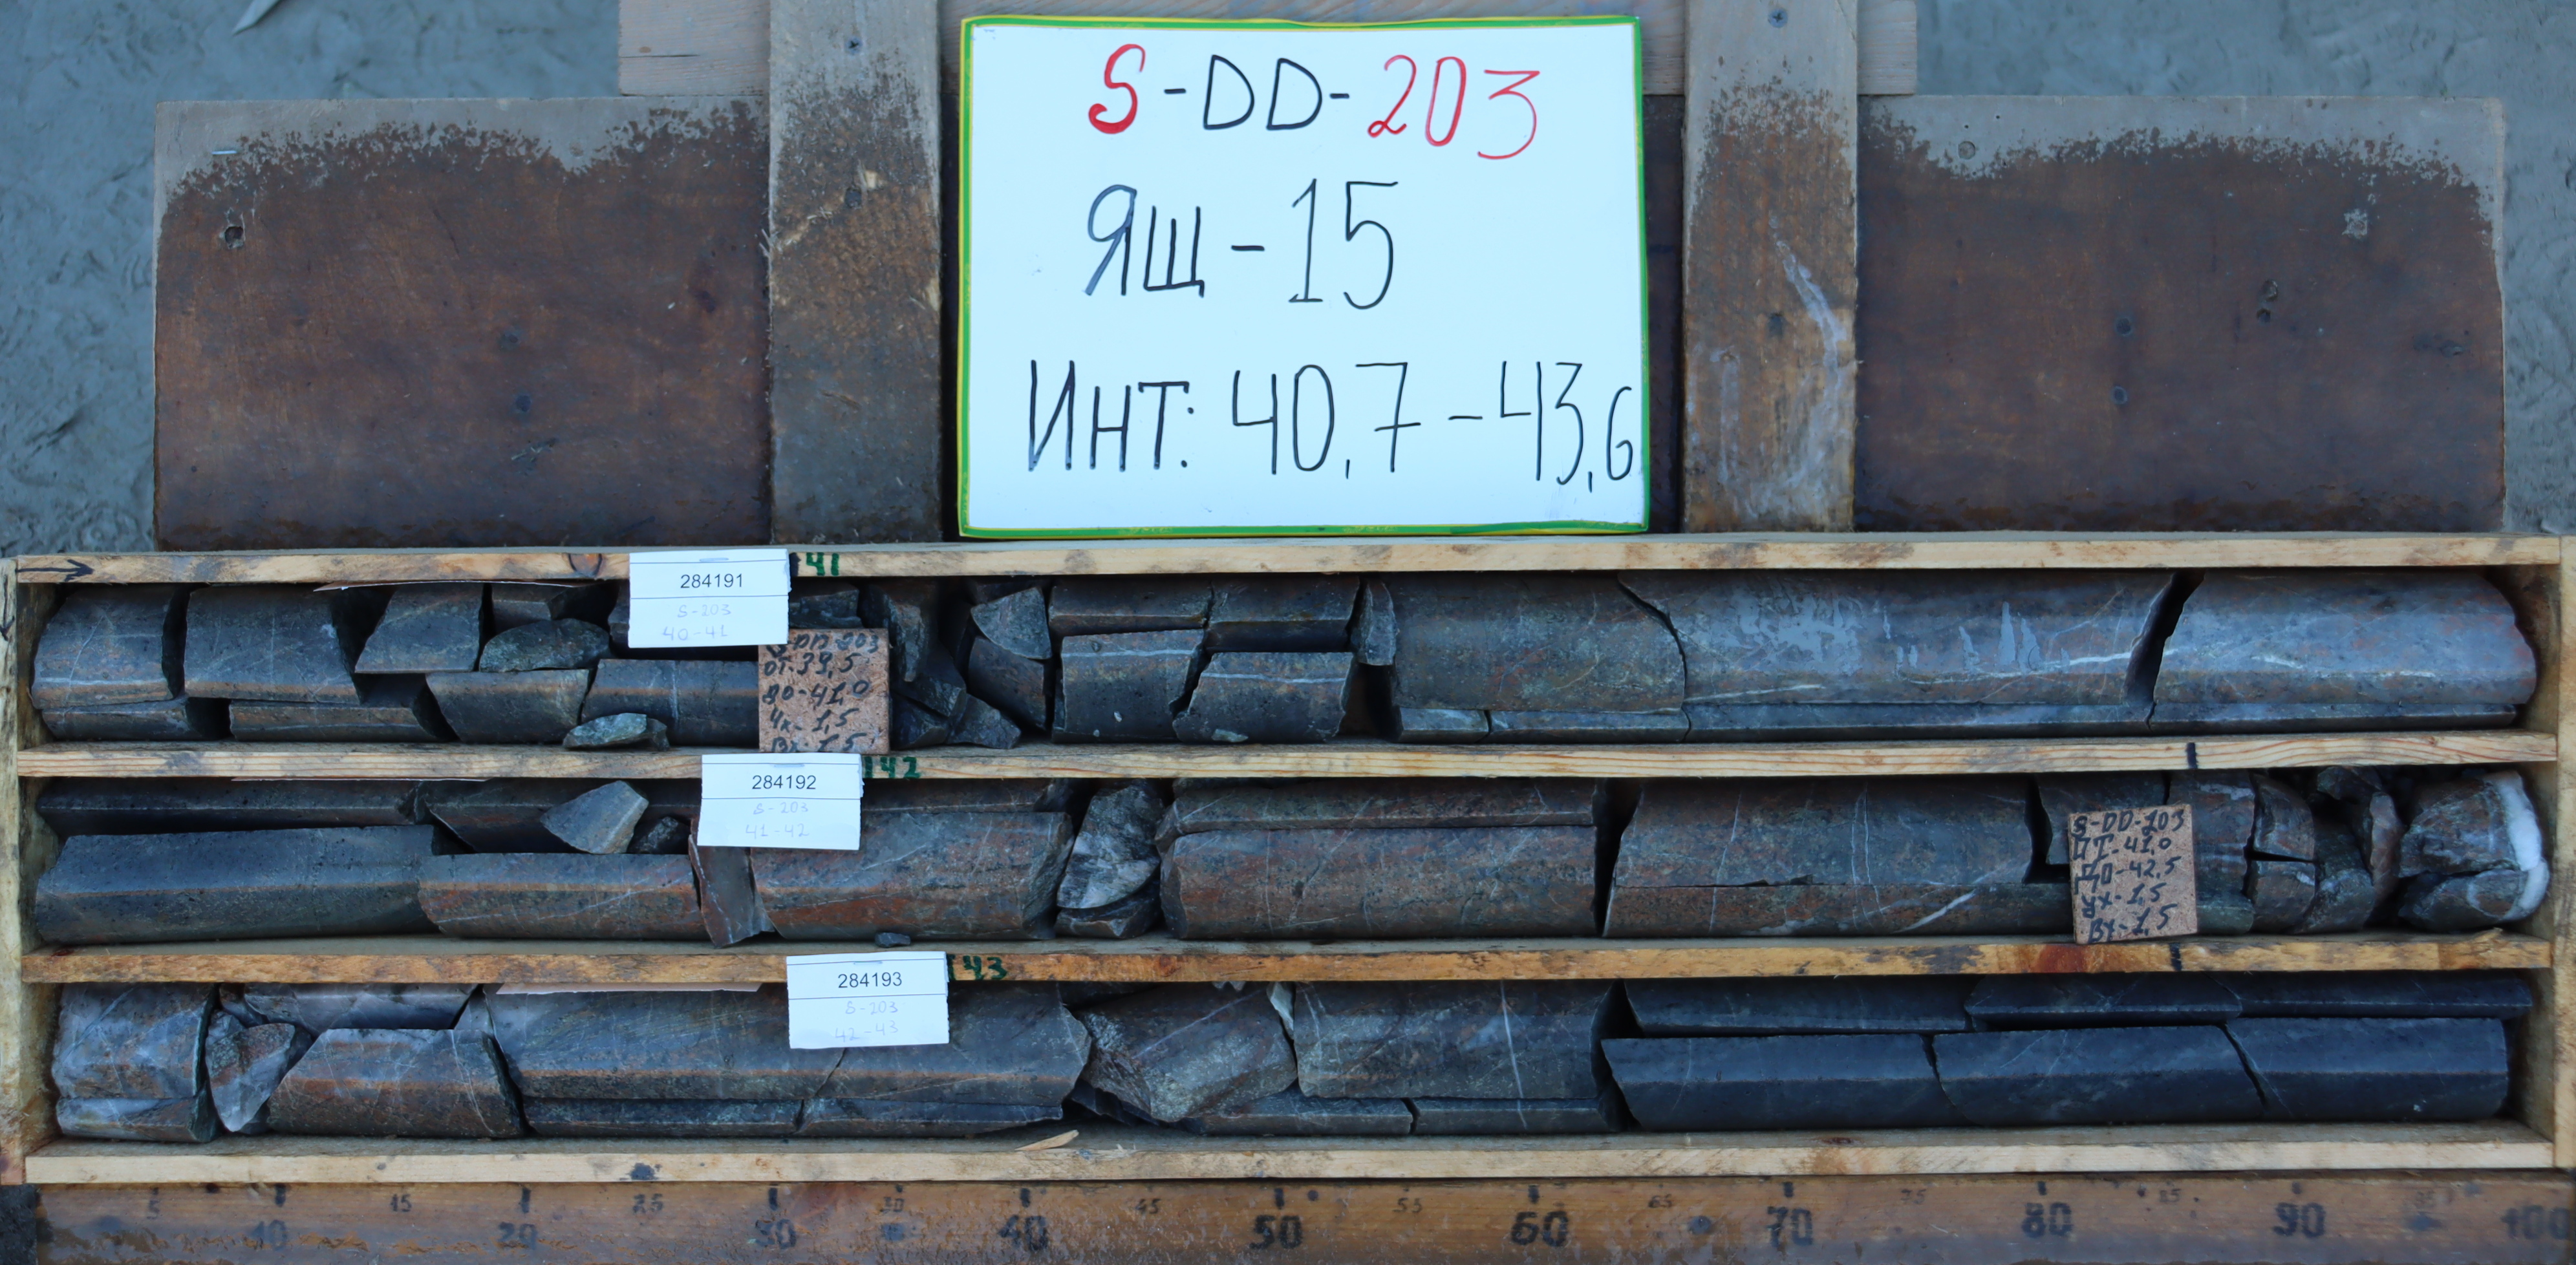 S-DD-203
ЯЩ-15
Инт: 40,7-43,6
41
284191
S-203
40-41
S-DD-203
от-39,5
до-41,0
Ух-1,5
Вх-1,5
42
284192
S-203
41-42
S-DD-203
ОТ-41,0
ДО-42,5
Ух-1,5
Вх-1,5
43
284193
S-203
42-43
5 10 15 20 25 30 40 45 50 55 60 65 70 75 80 85 90 95 100